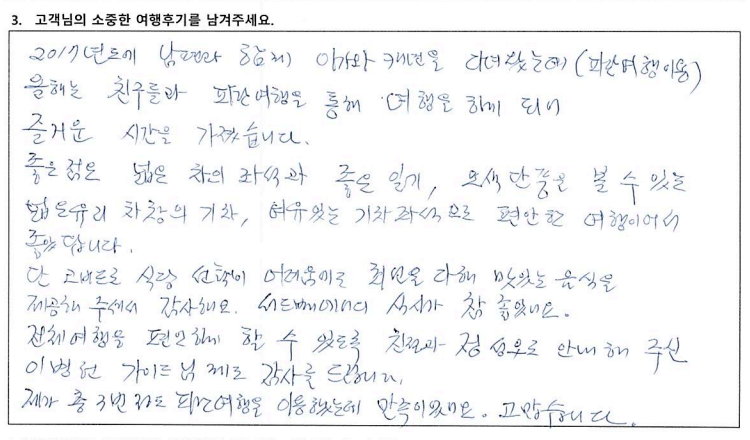 3. 고객님의 소중한 여행후기를 남겨주세요.
2017년도에 남편과 함께 이가와 캐년을 다녀왔는데(파란여행이용)
올해는 친구들과 파란여행을 통해 여행을 하게 되어
즐거운 시간을 가졌습니다.
좋은 점은 넓은 차의 좌석과 좋은 일기, 오색단풍을 볼 수 있는
넓은유리 차창의 기차, 여유있는 기차좌석으로 편안한 여행이어서
좋았답니다.
단 코비드로 식당 선택이 어려움에도 최선을 다해 맛있는 음식을
제공해 주셔서 감사해요. 식사가 참 좋았네요.
전체여행을 편안하게 할 수 있도록 친절과 정성으로 안내해 주신
이병선 가이드님께도 감사를 드립니다.
제가 총 3번 정도 파란여행을 이용했는데 만족이었네요. 고맙습니다.